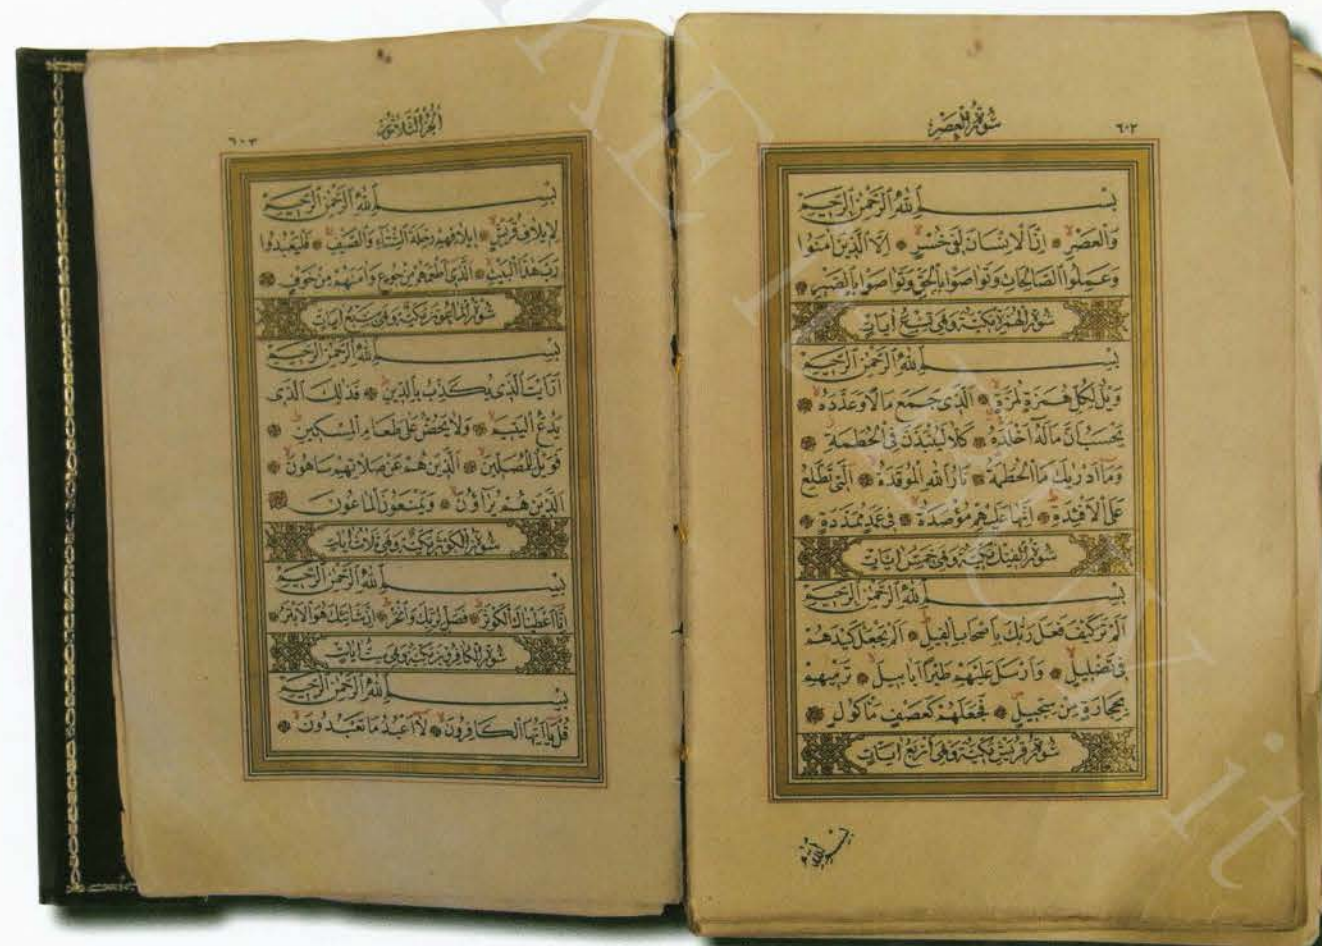 سورة العصر
٦٠٢
بسم الله الرحمن الرحيم
والعصر اِنَّ الْاِنْسَانَ لَفى خُسْرٍ اِلَّا الَّذينَ اٰمَنُوا
وَعَمِلُوا الصَّالِحَاتِ وَتَوَاصَوْا بِالْحَقِّ وَتَوَاصَوْا بِالصَّبْرِ
سورة الهمزة مكية وهى تسع ايات
بسم الله الرحمن الرحيم
وَيْلٌ لِكُلِّ هُمَزَةٍ لُمَزَةٍ اَلَّذى جَمَعَ مَالًا وَعَدَّدَهُ
يَحْسَبُ اَنَّ مَالَهُ اَخْلَدَهُ كَلَّا لَيُنْبَذَنَّ فِى الْحُطَمَةِ
وَمَا اَدْرٰيكَ مَا الْحُطَمَةُ نَارُ اللهِ الْمُوقَدَةُ اَلَّتى تَطَّلِعُ
عَلَى الْاَفْئِدَةِ اِنَّهَا عَلَيْهِمْ مُؤْصَدَةٌ فى عَمَدٍ مُمَدَّدَةٍ
سورة الفيل مكية وهى خمس ايات
بسم الله الرحمن الرحيم
اَلَمْ تَرَ كَيْفَ فَعَلَ رَبُّكَ بِاَصْحَابِ الْفيلِ اَلَمْ يَجْعَلْ كَيْدَهُمْ
فى تَضْليلٍ وَاَرْسَلَ عَلَيْهِمْ طَيْرًا اَبَابيلَ تَرْميهِمْ
بِحِجَارَةٍ مِنْ سِجّيلٍ فَجَعَلَهُمْ كَعَصْفٍ مَأْكُولٍ
سورة قريش مكية وهى اربع ايات
الجزء الثلاثون
٦٠٣
بسم الله الرحمن الرحيم
لِايلَافِ قُرَيْشٍ ايلَافِهِمْ رِحْلَةَ الشِّتَاءِ وَالصَّيْفِ فَلْيَعْبُدُوا
رَبَّ هٰذَا الْبَيْتِ اَلَّذى اَطْعَمَهُمْ مِنْ جُوعٍ وَاٰمَنَهُمْ مِنْ خَوْفٍ
سورة الماعون مكية وهى سبع ايات
بسم الله الرحمن الرحيم
اَرَاَيْتَ الَّذى يُكَذِّبُ بِالدّينِ فَذٰلِكَ الَّذى
يَدُعُّ الْيَتيمَ وَلَا يَحُضُّ عَلٰى طَعَامِ الْمِسْكينِ
فَوَيْلٌ لِلْمُصَلّينَ اَلَّذينَ هُمْ عَنْ صَلَاتِهِمْ سَاهُونَ
اَلَّذينَ هُمْ يُرَاؤُنَ وَيَمْنَعُونَ الْمَاعُونَ
سورة الكوثر مكية وهى ثلاث ايات
بسم الله الرحمن الرحيم
اِنَّا اَعْطَيْنَاكَ الْكَوْثَرَ فَصَلِّ لِرَبِّكَ وَانْحَرْ اِنَّ شَانِئَكَ هُوَ الْاَبْتَرُ
سورة الكافرون مكية وهى ست ايات
بسم الله الرحمن الرحيم
قُلْ يَا اَيُّهَا الْكَافِرُونَ لَا اَعْبُدُ مَا تَعْبُدُونَ